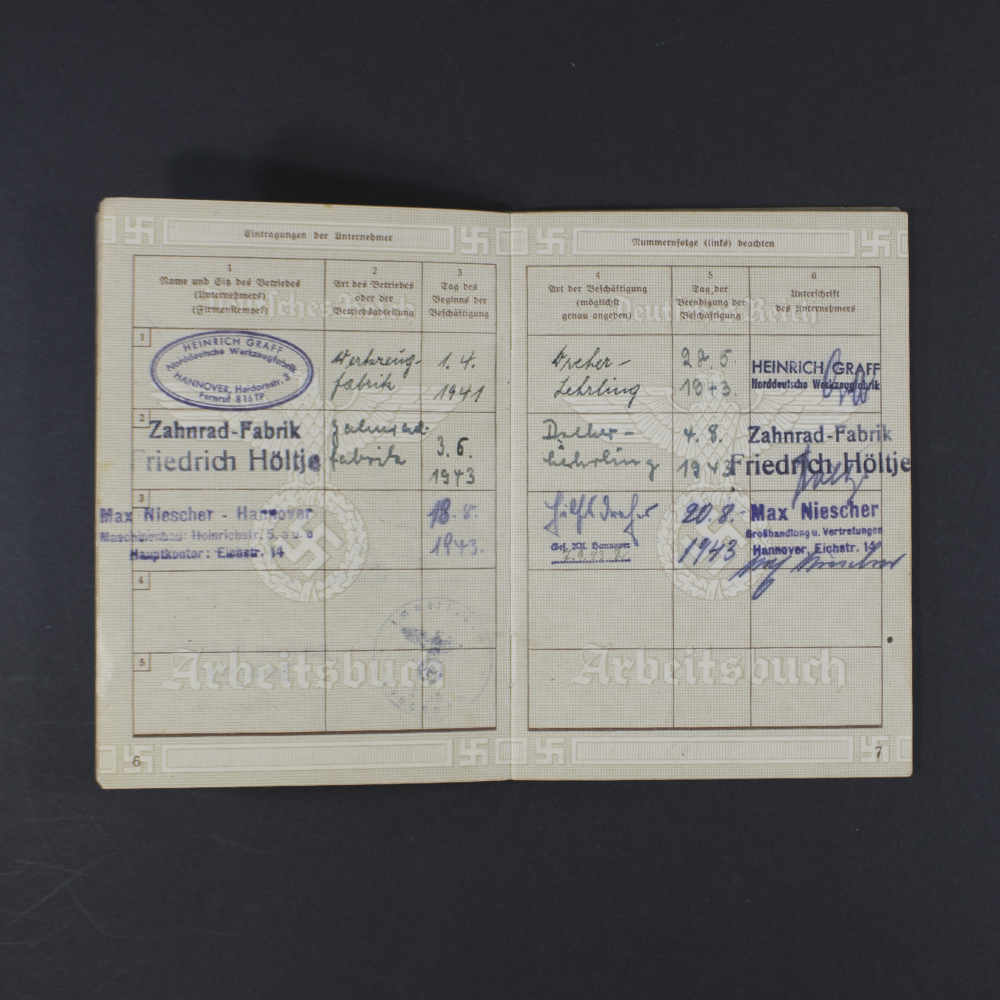 Eintragungen der Unternehmer
1
Name und Sitz des Betriebes
(Unternehmers)
(Firmenstempel)
2
Art des Betriebes
oder der
Betriebsabteilung
3
Tag des
Beginns der
Beschäftigung
Deutsches Reich
1
HEINRICH GRAFF
Norddeutsche Werkzeugfabrik
HANNOVER, Heidornstr. 3
Fernruf 81519
Werkzeug-
fabrik
1. 4.
1941
2
Zahnrad-Fabrik
Friedrich Höltje
Zahnrad-
fabrik
3. 6.
1943
3
Max Niescher - Hannover
Maschinenbau: Heinrichstr.
Hauptkontor: Eichstr. 14
1943.
4
5
Arbeitsbuch
6
Nummernfolge (links) beachten
4
Art der Beschäftigung
(möglichst
genau angeben)
5
Tag der
Beendigung der
Beschäftigung
6
Unterschrift
des Unternehmers
Deutsches Reich
Dreher-
Lehrling
5.
1943.
HEINRICH GRAFF
Norddeutsche Werkzeugfabrik
Dreher-
Lehrling
4. 8.
1943
Zahnrad-Fabrik
Friedrich Höltje
Hilfsdreher
Hannover
20. 8.
1943
Max Niescher
Großhandlung u. Vertretungen
Hannover, Eichstr. 14
Arbeitsbuch
7